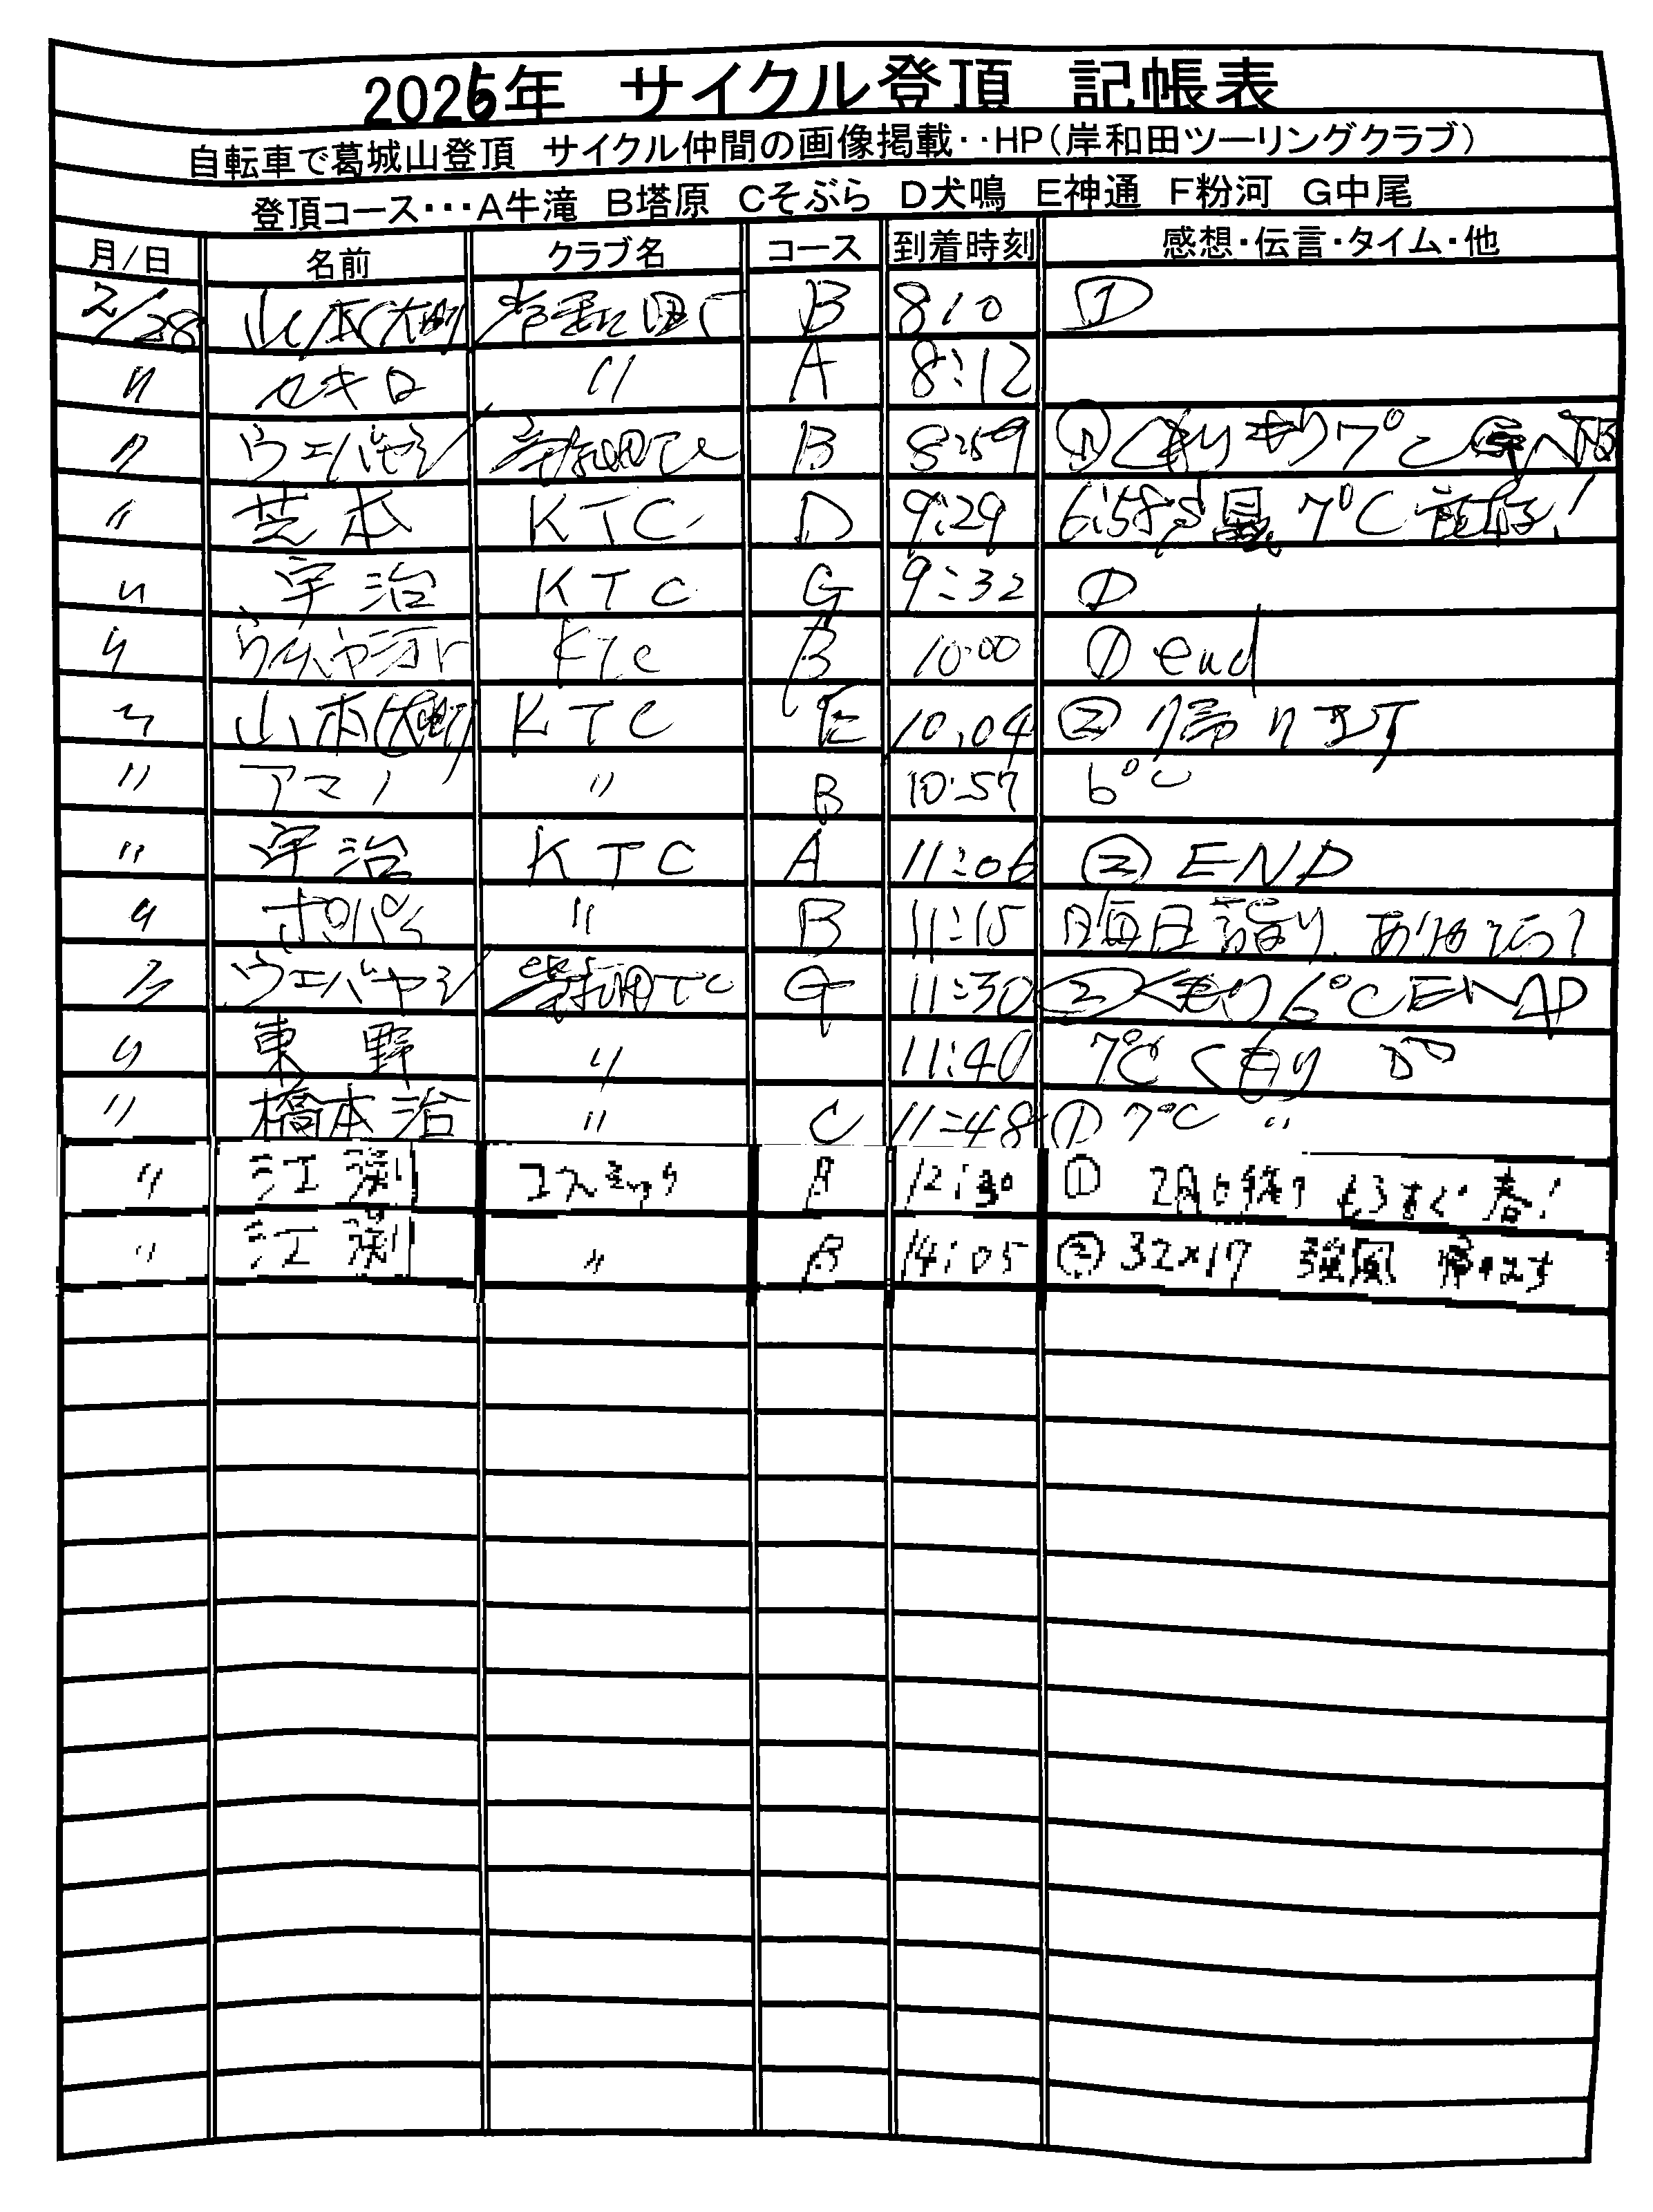 2026年 サイクル登頂 記帳表
自転車で葛城山登頂 サイクル仲間の画像掲載‥HP(岸和田ツーリングクラブ)
登頂コース・・・A牛滝 B塔原 Cそぶら D犬鳴 E神通 F粉河 G中尾
月/日 名前 クラブ名 コース 到着時刻 感想・伝言・タイム・他
2/28 山本 B 8:10 ①
〃 セキロ 〃 A 8:12
〃 ウエバヤシ 岸和田TC B 8:59 ① くもり 7℃
〃 芝本 KTC D 9:29 7℃
〃 宇治 KTC G 9:32 ①
〃 KTC B 10:00 ① end
〃 山本 KTC E 10:04 ② 帰ります
〃 アマノ 〃 B 10:57 6℃
〃 宇治 KTC A 11:06 ② END
〃 〃 B 11:15 晦日詣り
〃 ウエバヤシ 岸和田TC G 11:30 ② くもり 6℃ END
〃 東野 〃 11:40 7℃ くもり
〃 橋本治 〃 C 11:48 ① 7℃ 〃
〃 江渕 コスミック B 12:30 ① もうすぐ春!
〃 江渕 〃 B 14:05 ② 32×17 強風 帰ります